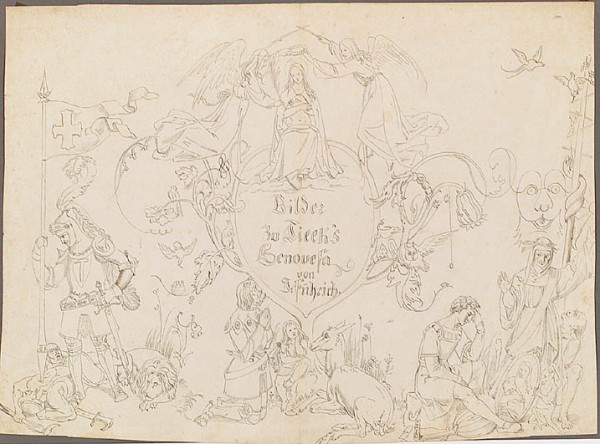 Bilder
zu Tieck's
Genovefa
von
J. Führich